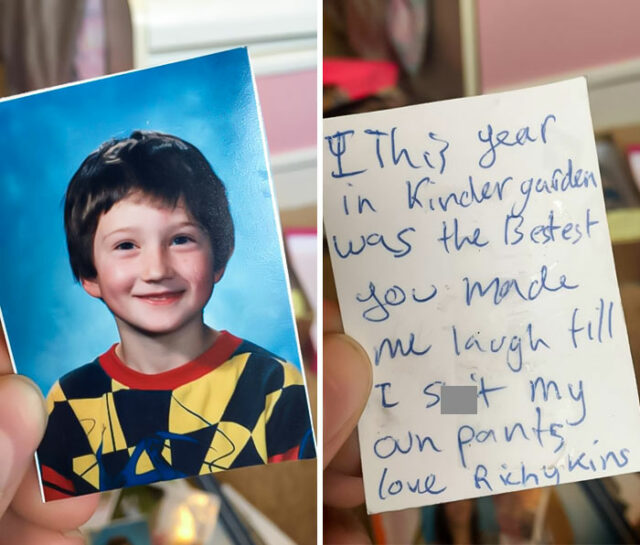 I This year
in Kindergarden
was the Bestest
you made
me laugh till
I s t my
own pants
love Richykins